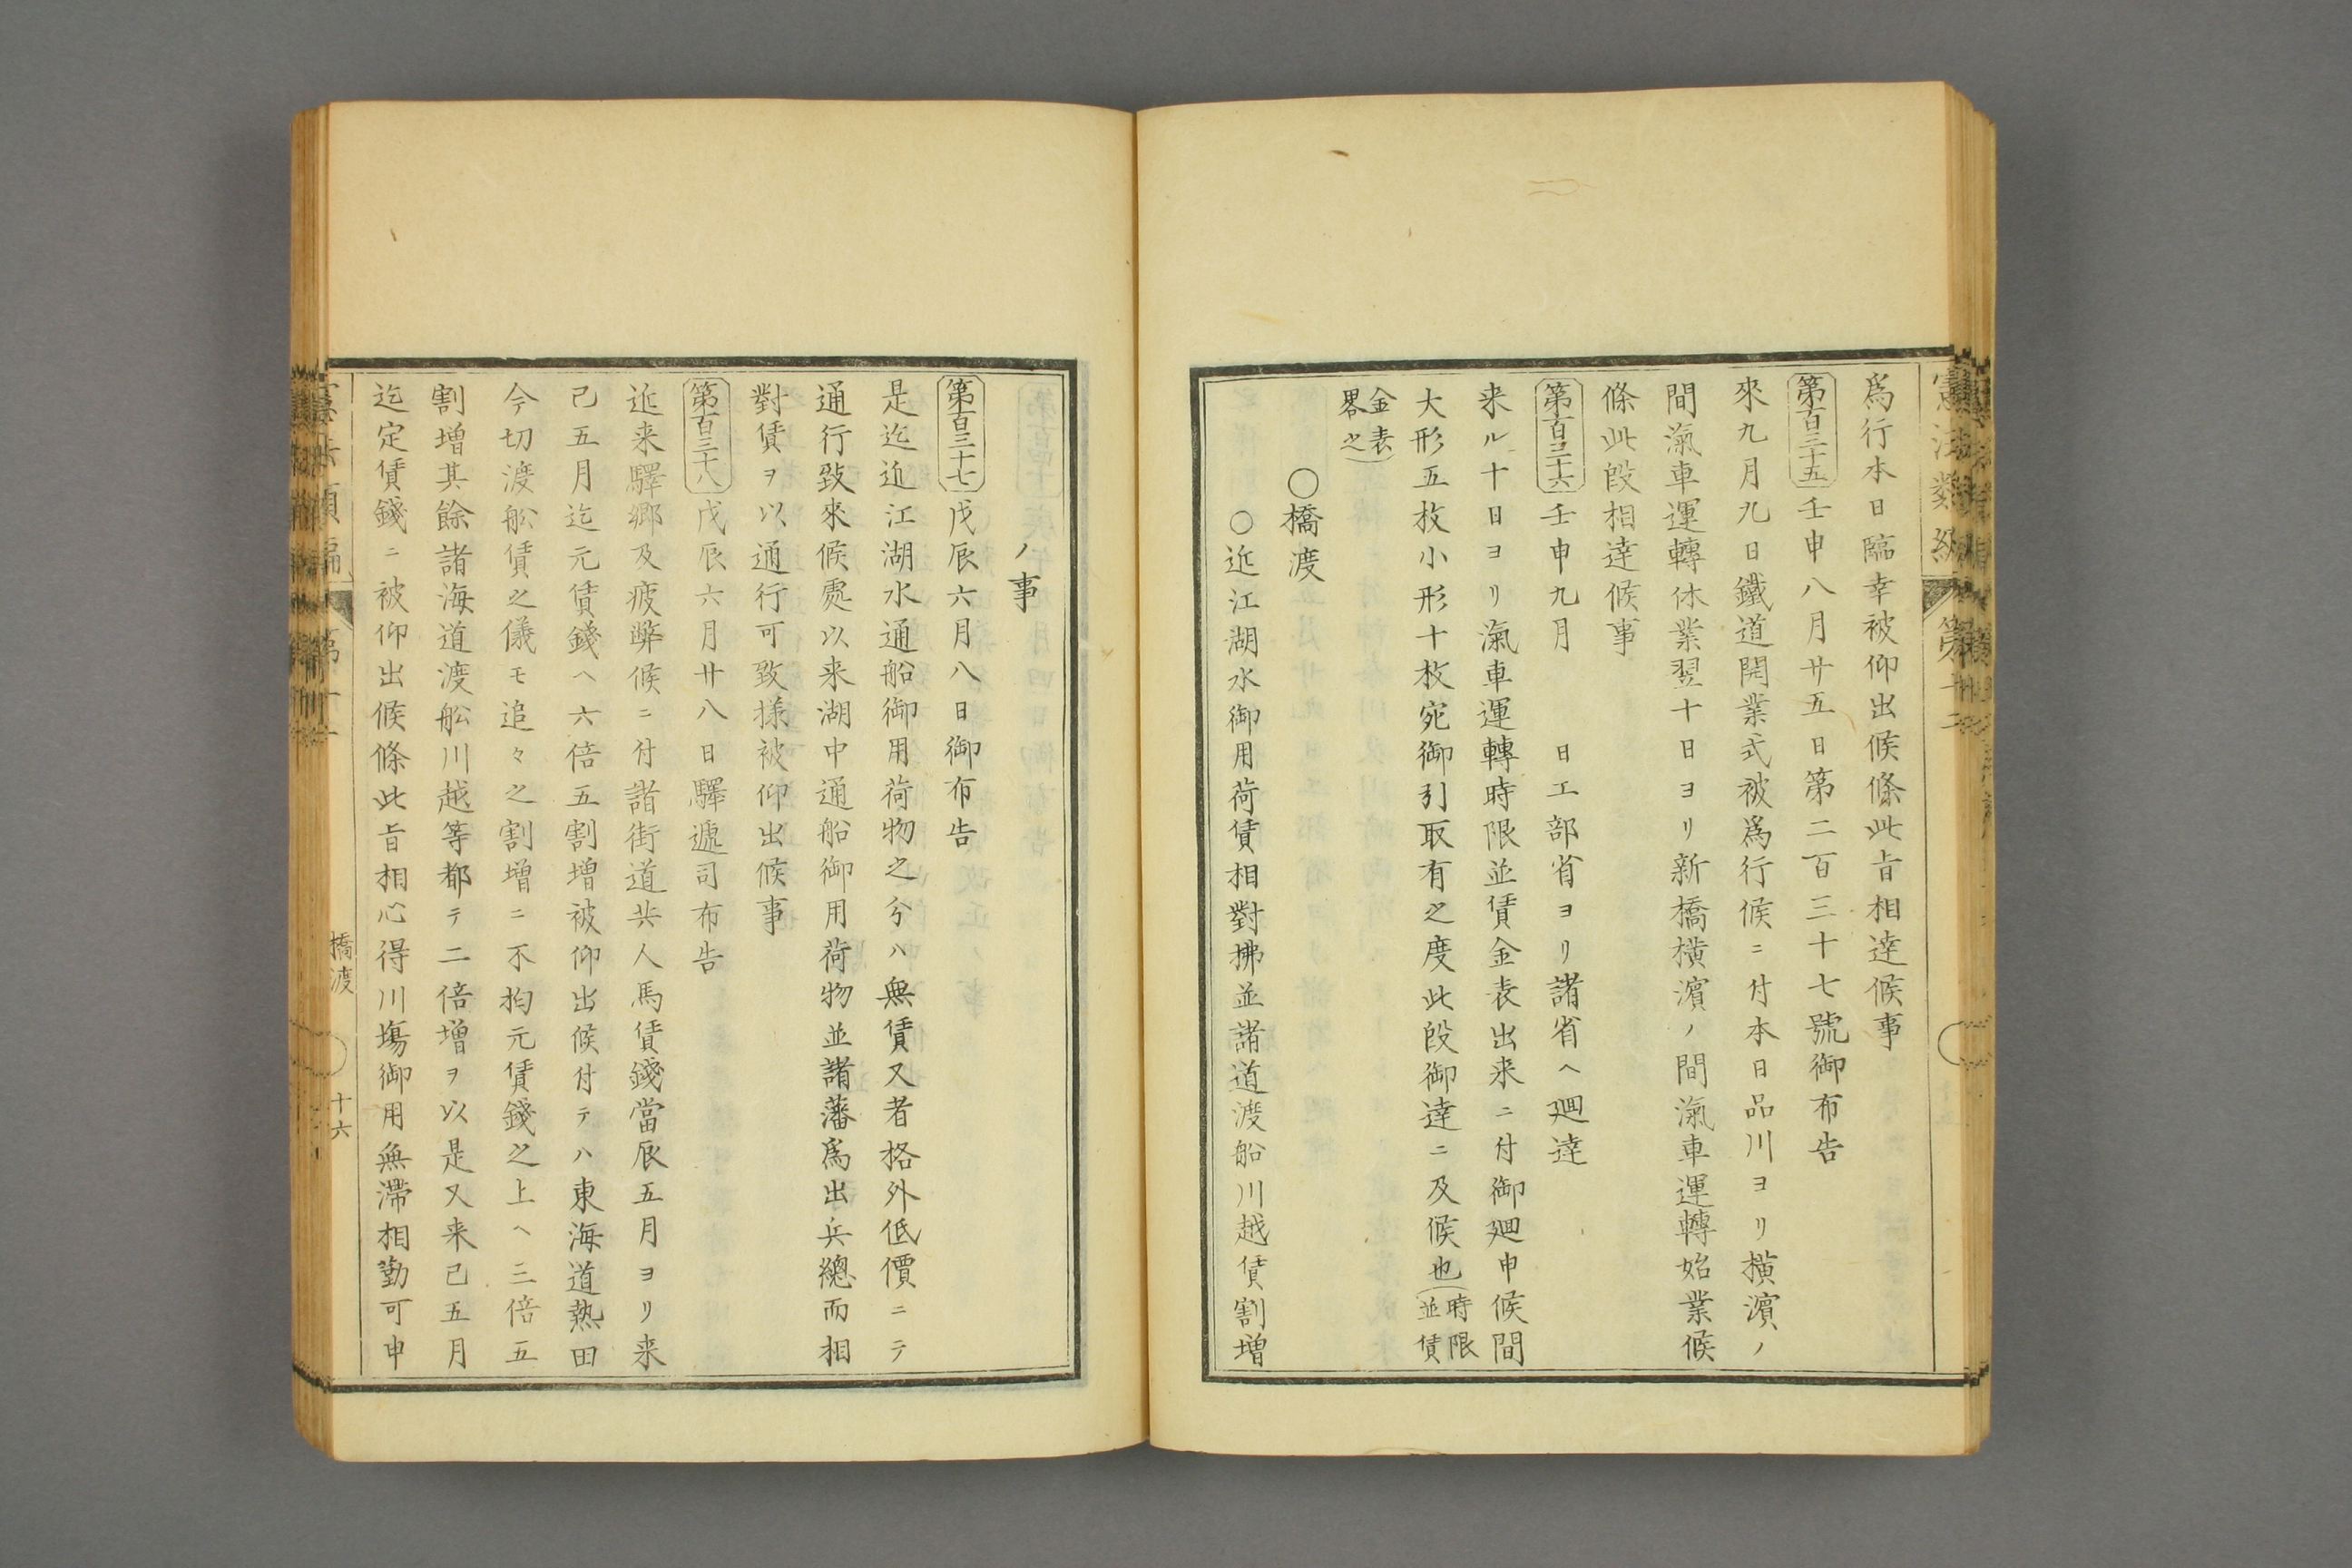 爲行本日臨幸被仰出候條此旨相達候事
第百三十五 壬申八月廿五日第二百三十七號御布告
來九月九日鐵道開業式被爲行候ニ付本日品川ヨリ橫濱ノ
間滊車運轉休業翌十日ヨリ新橋橫濱ノ間滊車運轉始業候
條此段相達候事
第百三十六 壬申九月　日工部省ヨリ諸省ヘ廻達
来ル十日ヨリ滊車運轉時限並賃金表出来ニ付御廻申候間
大形五枚小形十枚宛御引取有之度此段御達ニ及候也(時限並賃
金表畧之)
〇橋渡
〇近江湖水御用荷賃相對拂並諸道渡船川越賃割増
ノ事
第百三十七 戊辰六月八日御布告
是迄近江湖水通船御用荷物之分ハ無賃又者格外低價ニテ
通行致來候處以来湖中通船御用荷物並諸藩爲出兵總而相
對賃ヲ以通行可致様被仰出候事
第百三十八 戊辰六月廿八日驛遞司布告
近来驛郷及疲弊候ニ付諸街道共人馬賃錢當辰五月ヨリ来
己五月迄元賃錢ヘ六倍五割増被仰出候付テハ東海道熱田
今切渡舩賃之儀モ追々之割増ニ不拘元賃錢之上ヘ三倍五
割増其餘諸海道渡舩川越等都テ二倍増ヲ以是又来己五月
迄定賃錢ニ被仰出候條此旨相心得川塲御用無滯相勤可申
橋渡
十六